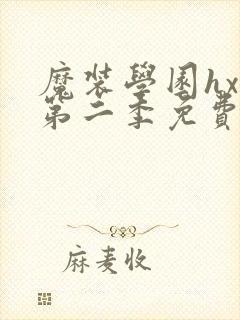 魔装學園hx
第二季免費
麻麦收